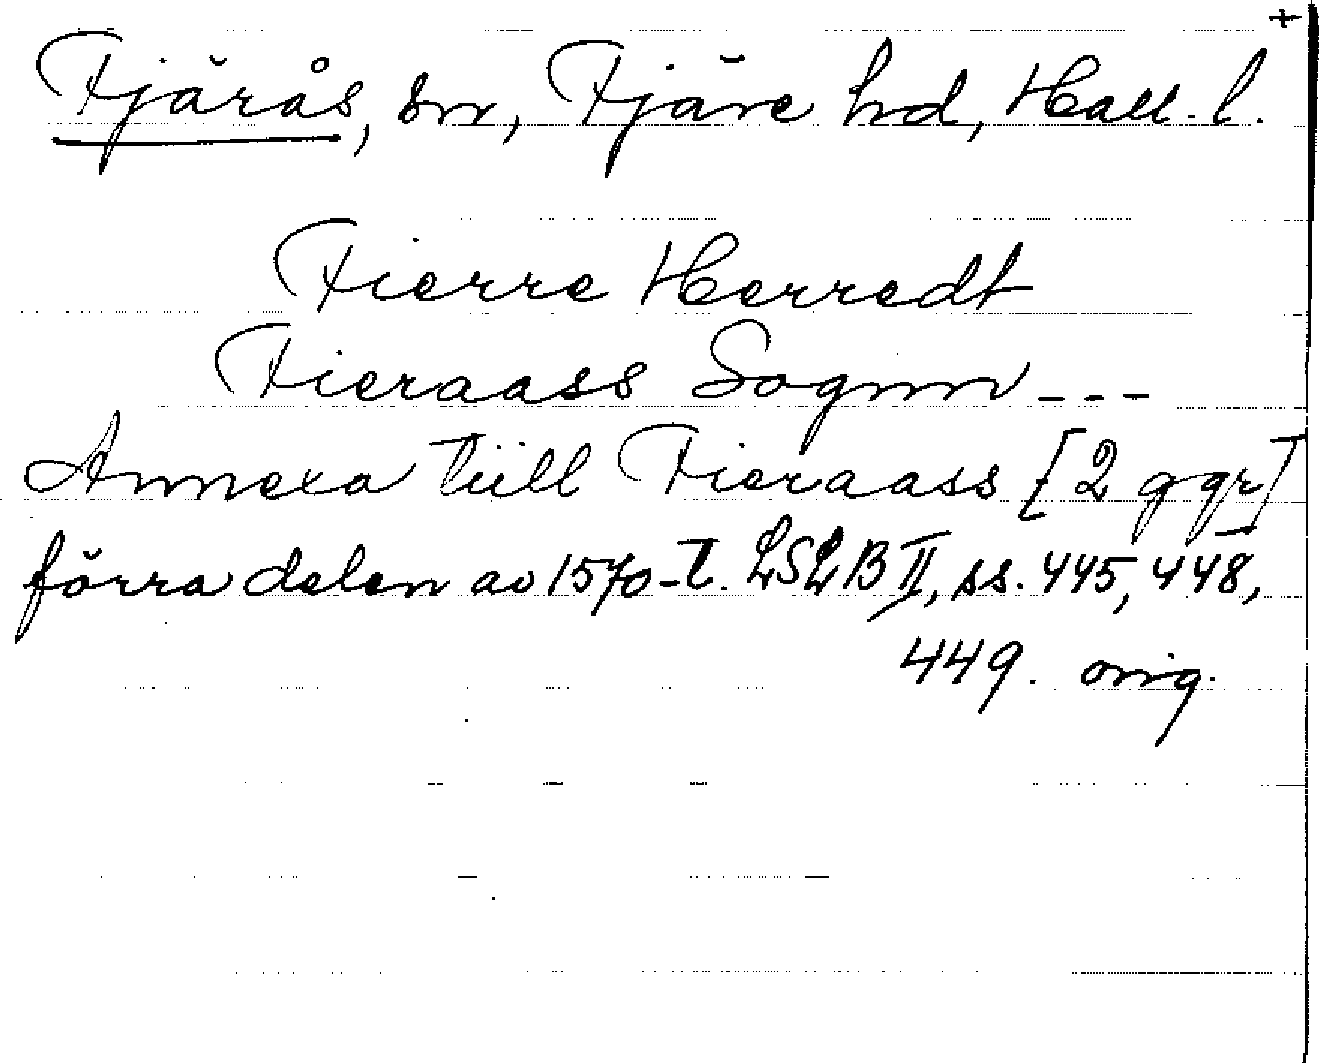 +
Fjärås, sn, Fjäre hd, Hall. l.
Fierre Herredt
Fieraass Sognn ---
Annexa tiill Fieraass [2 ggr]
förra delen av 1570-t. LSLB II, ss. 445, 448,
449. orig.